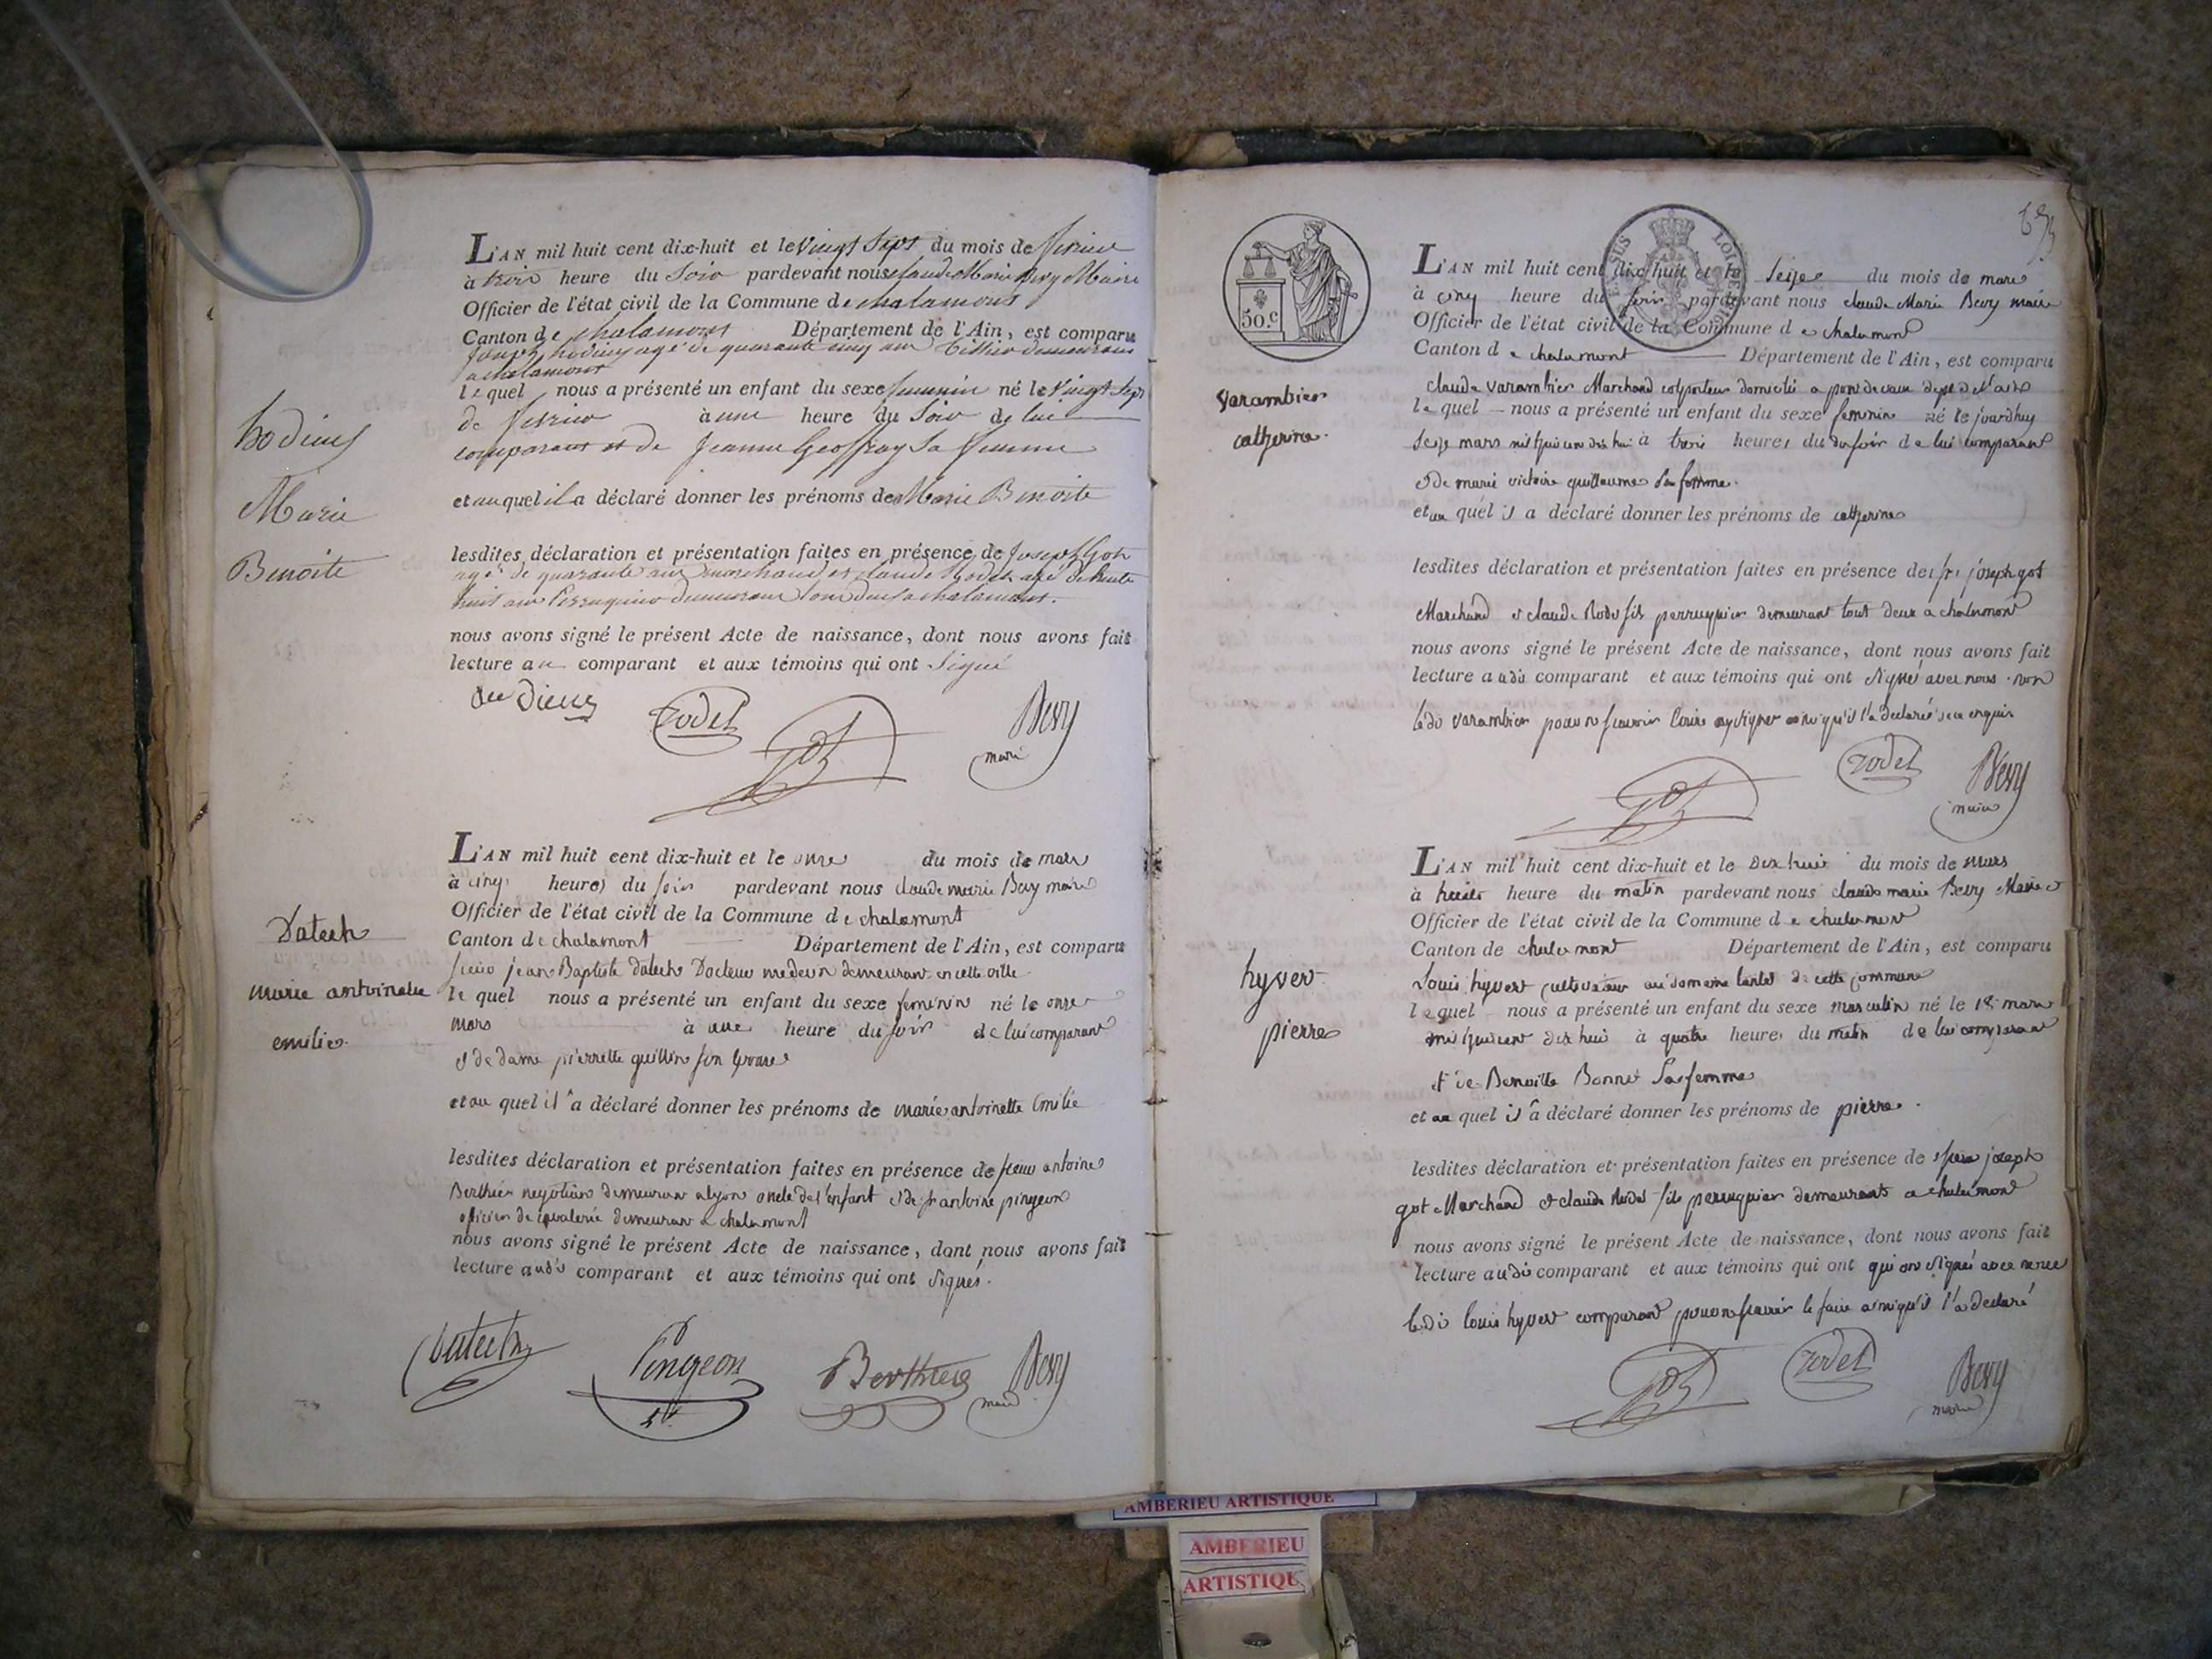 L'AN mil huit cent dix-huit et le vingt sept du mois de fevrier
à trois heure du Soir pardevant nous Claude Marie Bevy Maire
Officier de l'état civil de la Commune de chalamont
Canton de chalamont Département de l'Ain, est comparu
joseph hodieus agé de quarante cinq ans demeurant
a chalamont
le quel nous a présenté un enfant du sexe feminin né le vingt sept
de fevrier à une heure du Soir de lui
comparant et de jeanne Geoffray Sa femme
hodieus
Marie
Benoite
et auquel il a déclaré donner les prénoms de Marie Benoite
lesdites déclaration et présentation faites en présence de joseph Got
agé de quarante ans marchand et claude Rodet agé de trente
huit ans Perruquier demeurant tous deux a chalamont.
nous avons signé le présent Acte de naissance, dont nous avons fait
lecture au comparant et aux témoins qui ont signé
Rodet
Got
Bevy
maire
L'AN mil huit cent dix-huit et le onze du mois de mars
à cinq heures du soir pardevant nous claude marie Bevy maire
Officier de l'état civil de la Commune de chalamont
Canton de chalamont Département de l'Ain, est comparu
sieur jean Baptiste Datech Docteur medecin demeurant en cette ville
le quel nous a présenté un enfant du sexe feminin né le onze
mars à une heure du soir de lui comparant
et de dame pierrette guillin son epouse
Datech
marie antoinette
emilie
et au quel il a déclaré donner les prénoms de marie antoinette Emilie
lesdites déclaration et présentation faites en présence de sieur antoine
Berthier negotiant demeurant a lyon oncle de l'enfant et de sr antoine pingeon
officier de cavalerie demeurant a chalamont
nous avons signé le présent Acte de naissance, dont nous avons fait
lecture audit comparant et aux témoins qui ont signés.
Datech
Pingeon
Berthier
Bevy
maire
50.c
L'AN mil huit cent dix-huit et le seize du mois de mars
à cinq heure du soir pardevant nous claude Marie Bevy maire
Officier de l'état civil de la Commune de chalamont
Canton de chalamont Département de l'Ain, est comparu
claude varambier Marchand colporteur domicilié a pont de vaux dept de l'ain
le quel nous a présenté un enfant du sexe feminin né le jourdhuy
seize mars mil huit cent dix huit à trois heures du soir de lui comparant
et de marie victoire guillaume sa femme.
varambier
catherine.
et au quel il a déclaré donner les prénoms de catherine
lesdites déclaration et présentation faites en présence des srs joseph got
Marchand et claude Rodet fils perruquier demeurant tout deux a chalamont
nous avons signé le présent Acte de naissance, dont nous avons fait
lecture audit comparant et aux témoins qui ont signé avec nous non
ledit varambier pour ne scavoir ainsi qu'il l'a déclaré de ce enquis
Got
Rodet
Bevy
maire
L'AN mil huit cent dix-huit et le dix huit du mois de mars
à huit heure du matin pardevant nous claude marie Bevy Maire
Officier de l'état civil de la Commune de chalamont
Canton de chalamont Département de l'Ain, est comparu
Louis hyvert cultivateur au domaine de cette commune
le quel nous a présenté un enfant du sexe masculin né le 18 mars
mil huit cent dix huit à quatre heures du matin de lui comparant
et de Benoitte Bonnet sa femme
hyver
pierre
et au quel il a déclaré donner les prénoms de pierre.
lesdites déclaration et présentation faites en présence de sieur joseph
got Marchand et claude Rodet fils perruquier demeurants a chalamont
nous avons signé le présent Acte de naissance, dont nous avons fait
lecture audit comparant et aux témoins qui ont qui ont signés avec nous
ledit Louis hyvert comparant pour ne scavoir le faire ainsi qu'il l'a déclaré
Got
Rodet
Bevy
maire
AMBERIEU ARTISTIQUE
AMBERIEU
ARTISTIQU